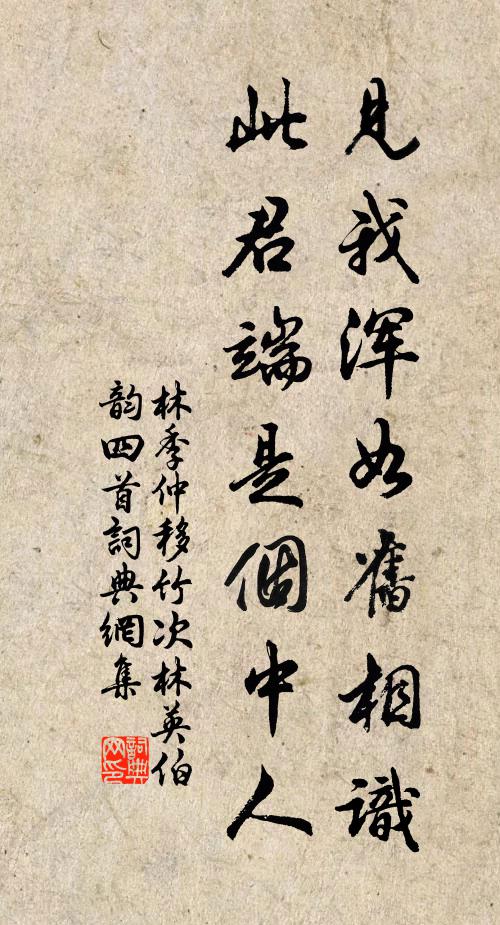 見我渾如舊相識
此君端是個中人
林季仲移竹次林英伯
韵四首詞典網集
詞典
网印